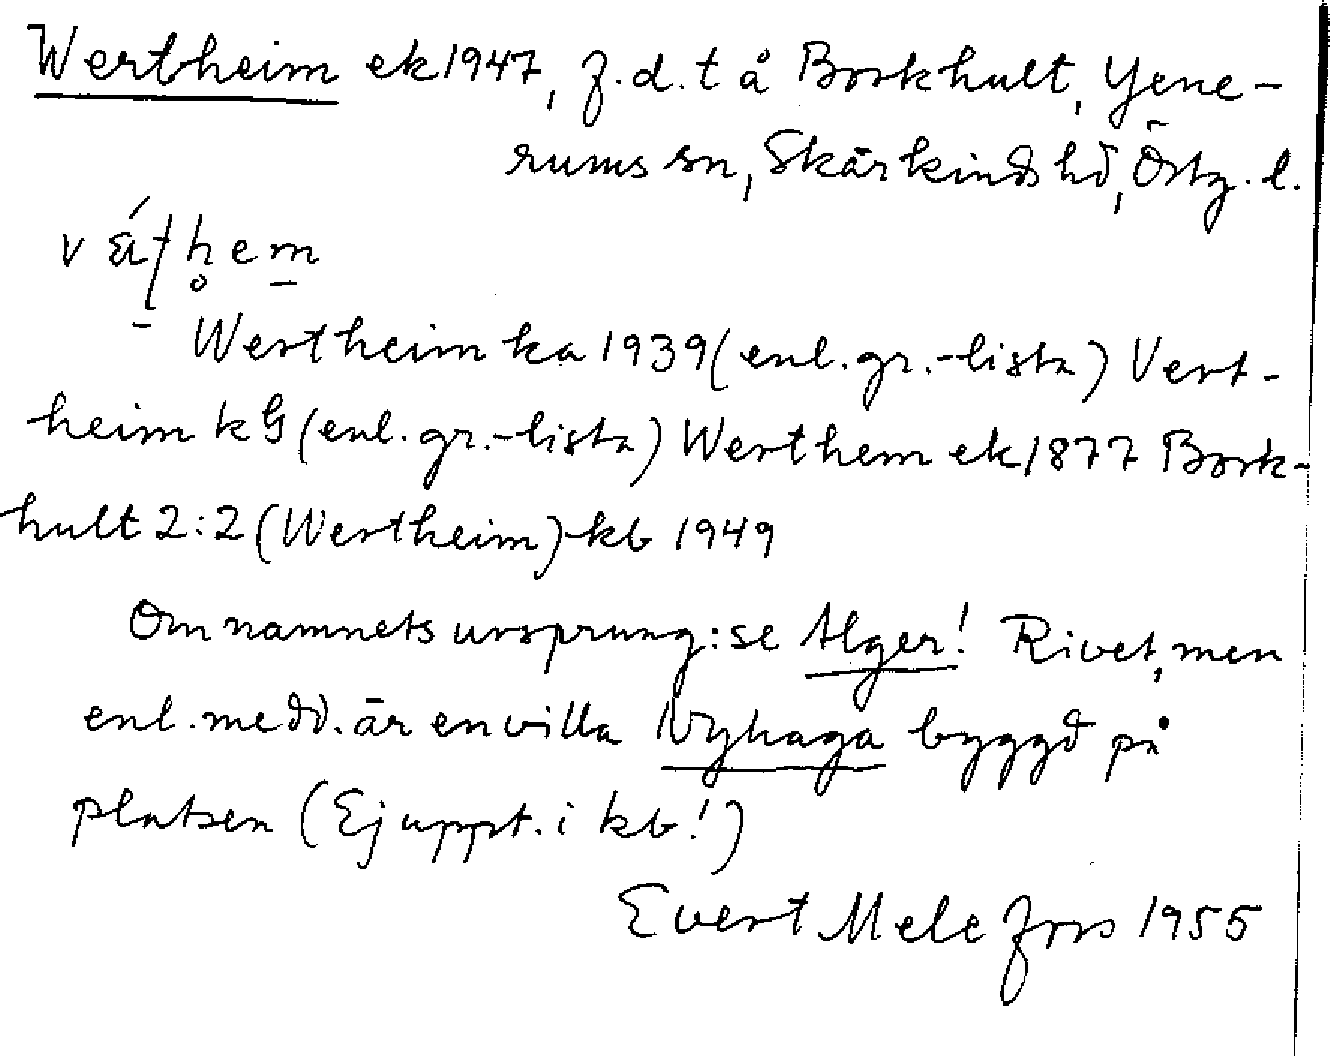 Wertheim ek 1947, f.d. t å Borkhult, Yene-
rums sn, Skärkinds hd, Östg. l.
Wertheim ka 1939 (enl. gr.-lista) Vert-
heim kG (enl. gr.-lista) Werthem ek 1877 Bork-
hult 2:2 (Wertheim) kb 1949
Om namnets ursprung: se Alger! Rivet, men
enl. medd. är en villa Nyhaga byggd på
platsen (Ej uppt. i kb!)
Evert Melefors 1955